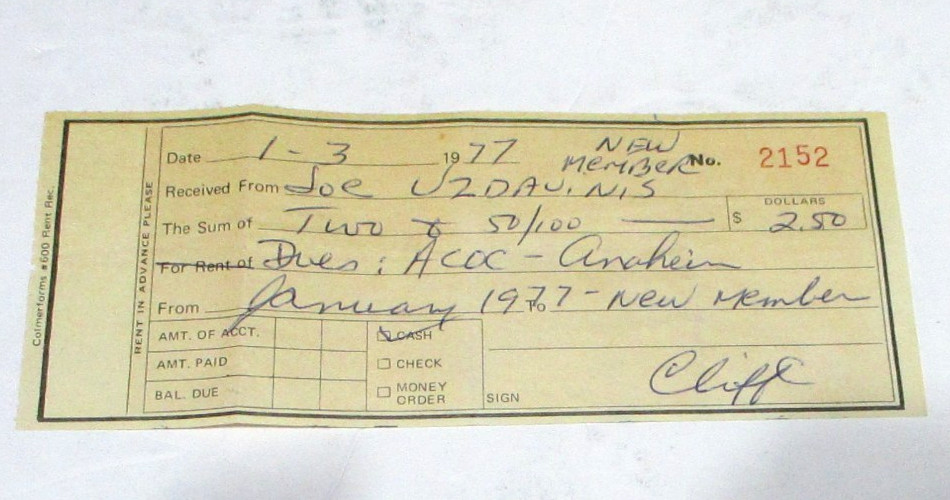 Colmerforms #600 Rent Rec.
RENT IN ADVANCE PLEASE
Date 1-3 1977 NEW MEMBER No. 2152
Received From Joe UZDAVINIS
DOLLARS
The Sum of Two + 50/100 $ 2.50
For Rent of Dues: ACOC - Anaheim
From January 1977 To - New Member
AMT. OF ACCT. CASH
AMT. PAID CHECK
BAL. DUE MONEY ORDER
SIGN Cliff